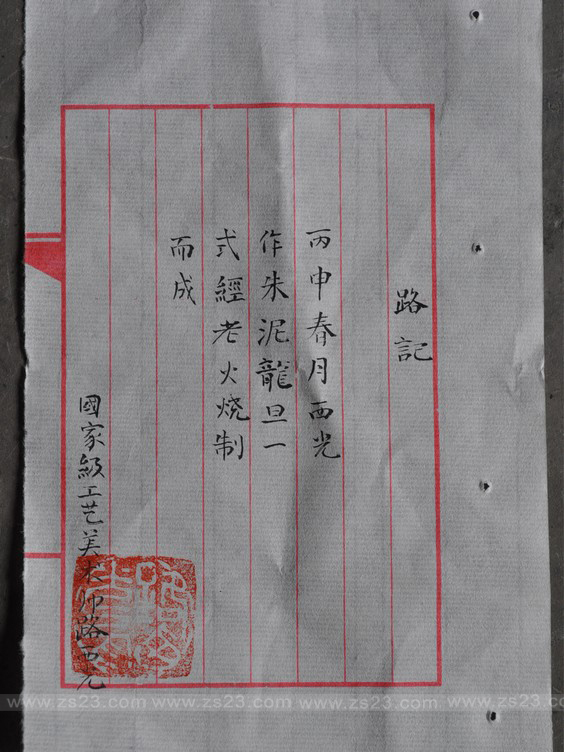 路記
丙申春月西光
作朱泥龍旦一
式經老火烧制
而成
國家級工艺美术师路西光
www.zs23.com www.zs23.com www.zs23.com www.zs23.com